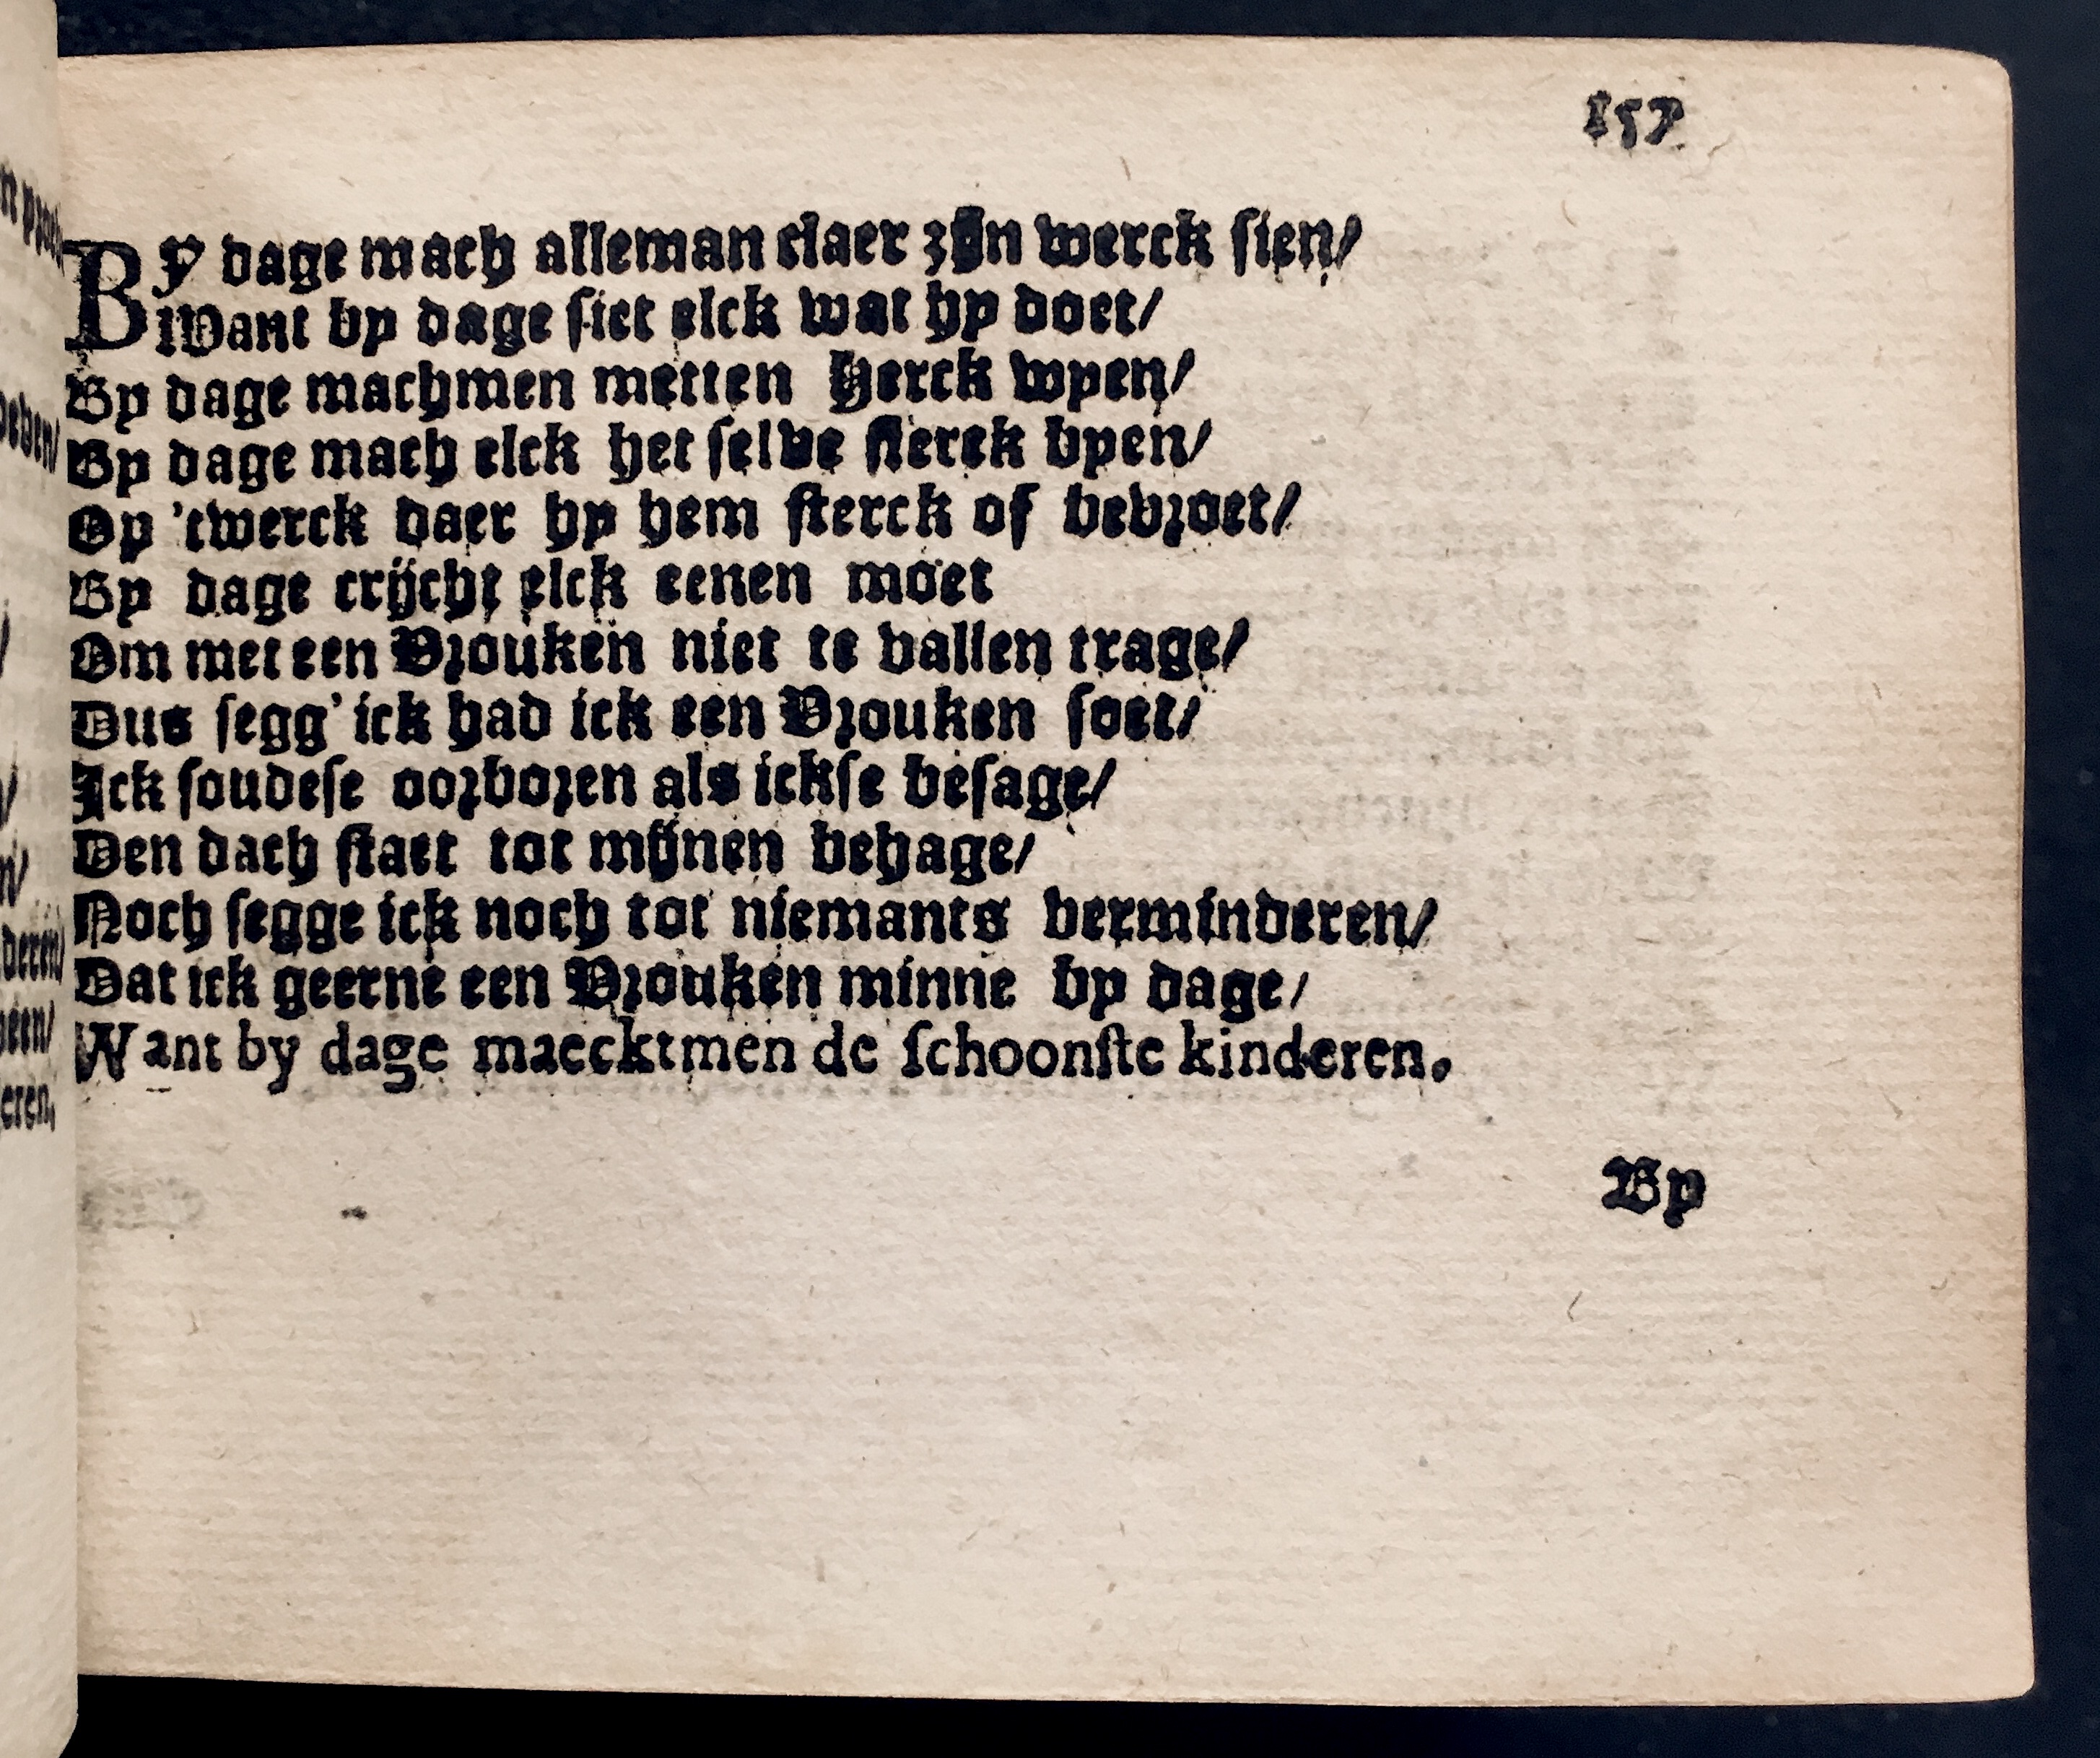 157
By dage mach alleman claer zijn werck sien/
Want by dage siet elck wat hy doet/
By dage machmen metten herck wyen/
By dage mach elck het selve sterck vyen/
Op 'twerck daer hy hem sterck of bevroet/
By dage crijcht elck eenen moet
Om met een Vrouken niet te vallen trage/
Dus segg' ick had ick een Vrouken soet/
Ick soudese oorboren als ickse besage/
Den dach staet tot mijnen behage/
Noch segge ick noch tot niemants verminderen/
Dat ick geerne een Vrouken minne by dage/
Want by dage maecktmen de schoonste kinderen.
By